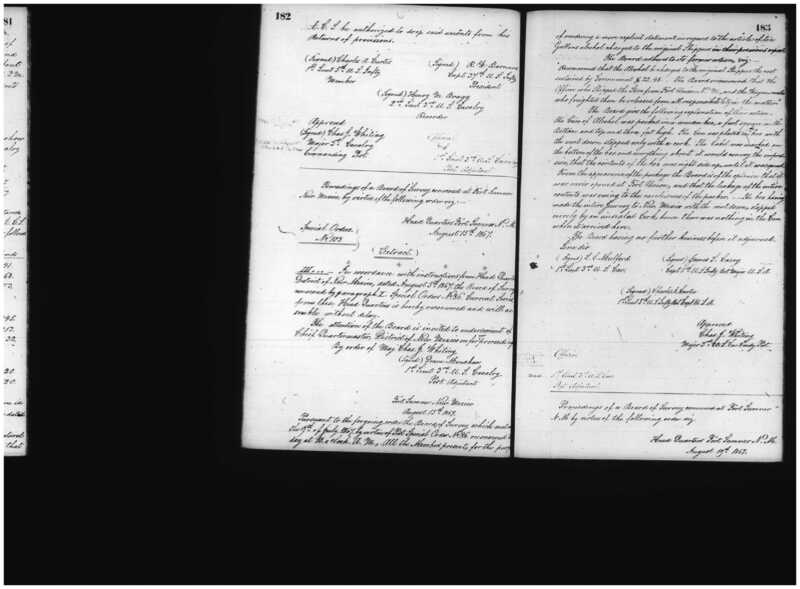 181
182
A.C.S. be authorized to drop said amounts from his
Returns of provisions.
(Signed) Charles A. Curtis
1st Lieut 5th U.S. Infty
Member
(Signed)
Capt 37th U.S. Infty
President
(Signed) Henry W. Bragg
2nd Lieut 3rd U.S. Cavalry
Recorder
Approved
(Signed) Chas. J. Whiting
Major 3rd Cavalry
Commanding Post.
Official
1st Lieut 3rd U.S. Cavalry
Post Adjutant
Proceedings of a Board of Survey convened at Fort Sumner
New Mexico, by virtue of the following order viz:
Head Quarters Fort Sumner N.M.
August 15th 1867.
Special Orders
No 103
(Extract)
In accordance with instructions from Head Quarters
District of New Mexico, dated August 5th 1867, the Board of Survey
convened by paragraph I Special Orders No 86 Current Series
from these Head Quarters is hereby reconvened and will as-
semble without delay.
The attention of the Board is invited to endorsement of
Chief Quartermaster, District of New Mexico on former proceedings
By order of Maj. Chas. J. Whiting
(Signed) Deane Monahan
1st Lieut 3rd U.S. Cavalry
Post Adjutant
Fort Sumner New Mexico
August 15th 1867.
Pursuant to the foregoing order the Board of Survey which
July 1867, by virtue of Post Special Orders No 86 reconvened
day at 10 o'clock A.M., All the Members present
183
of rendering a more explicit statement in regard to the articles of two
Gallons alcohol charged to the original Shipper in their previous report
The Board adhered to its former action, viz:
Recommend that the Alcohol be charged to the original Shipper the cost
sustained by Government The Board recommend that the
Officer who Shipped the same from Fort Union N.M. and the Wagon master
who freighted them be released from all responsibility in the matter.
The Board gives the following explanation of their action:
the Can of Alcohol was packed in a wooden box, a foot square in the
bottom and top and three feet high. The Can was placed in the box with
the vent down, stopped only with a cork. The label was marked on
the bottom of the box and everything about it would convey the impres-
sion, that the contents of the box was right side up until it was opened.
From the appearance of the package the Board is of the opinion that it
was never opened at Fort Union, and that the leakage of the entire
contents was owing to the carelessness of the packer. The box having
made the entire journey to New Mexico with the vent down, stopped
merely by an unsealed Cork, hence there was nothing in the Can
when it arrived here.
The Board having no further business before it adjourned
Sine die
(Signed)
1st Lieut 3rd U.S. Cav.
(Signed) James L. Casey
Capt 5th U.S. Infty Bvt Major U.S.A.
(Signed) Charles A. Curtis
1st Lieut 5th U.S. Infty Bvt Capt U.S.A.
Approved
Chas. J. Whiting
Major 3rd U.S. Cav Comdg Post.
Official
1st Lieut 3rd U.S. Cav
Post Adjutant
Proceedings of a Board of Survey convened at Fort Sumner
N.M. by virtue of the following order viz:
Head Quarters Fort Sumner N.M.
August 19th 1867.